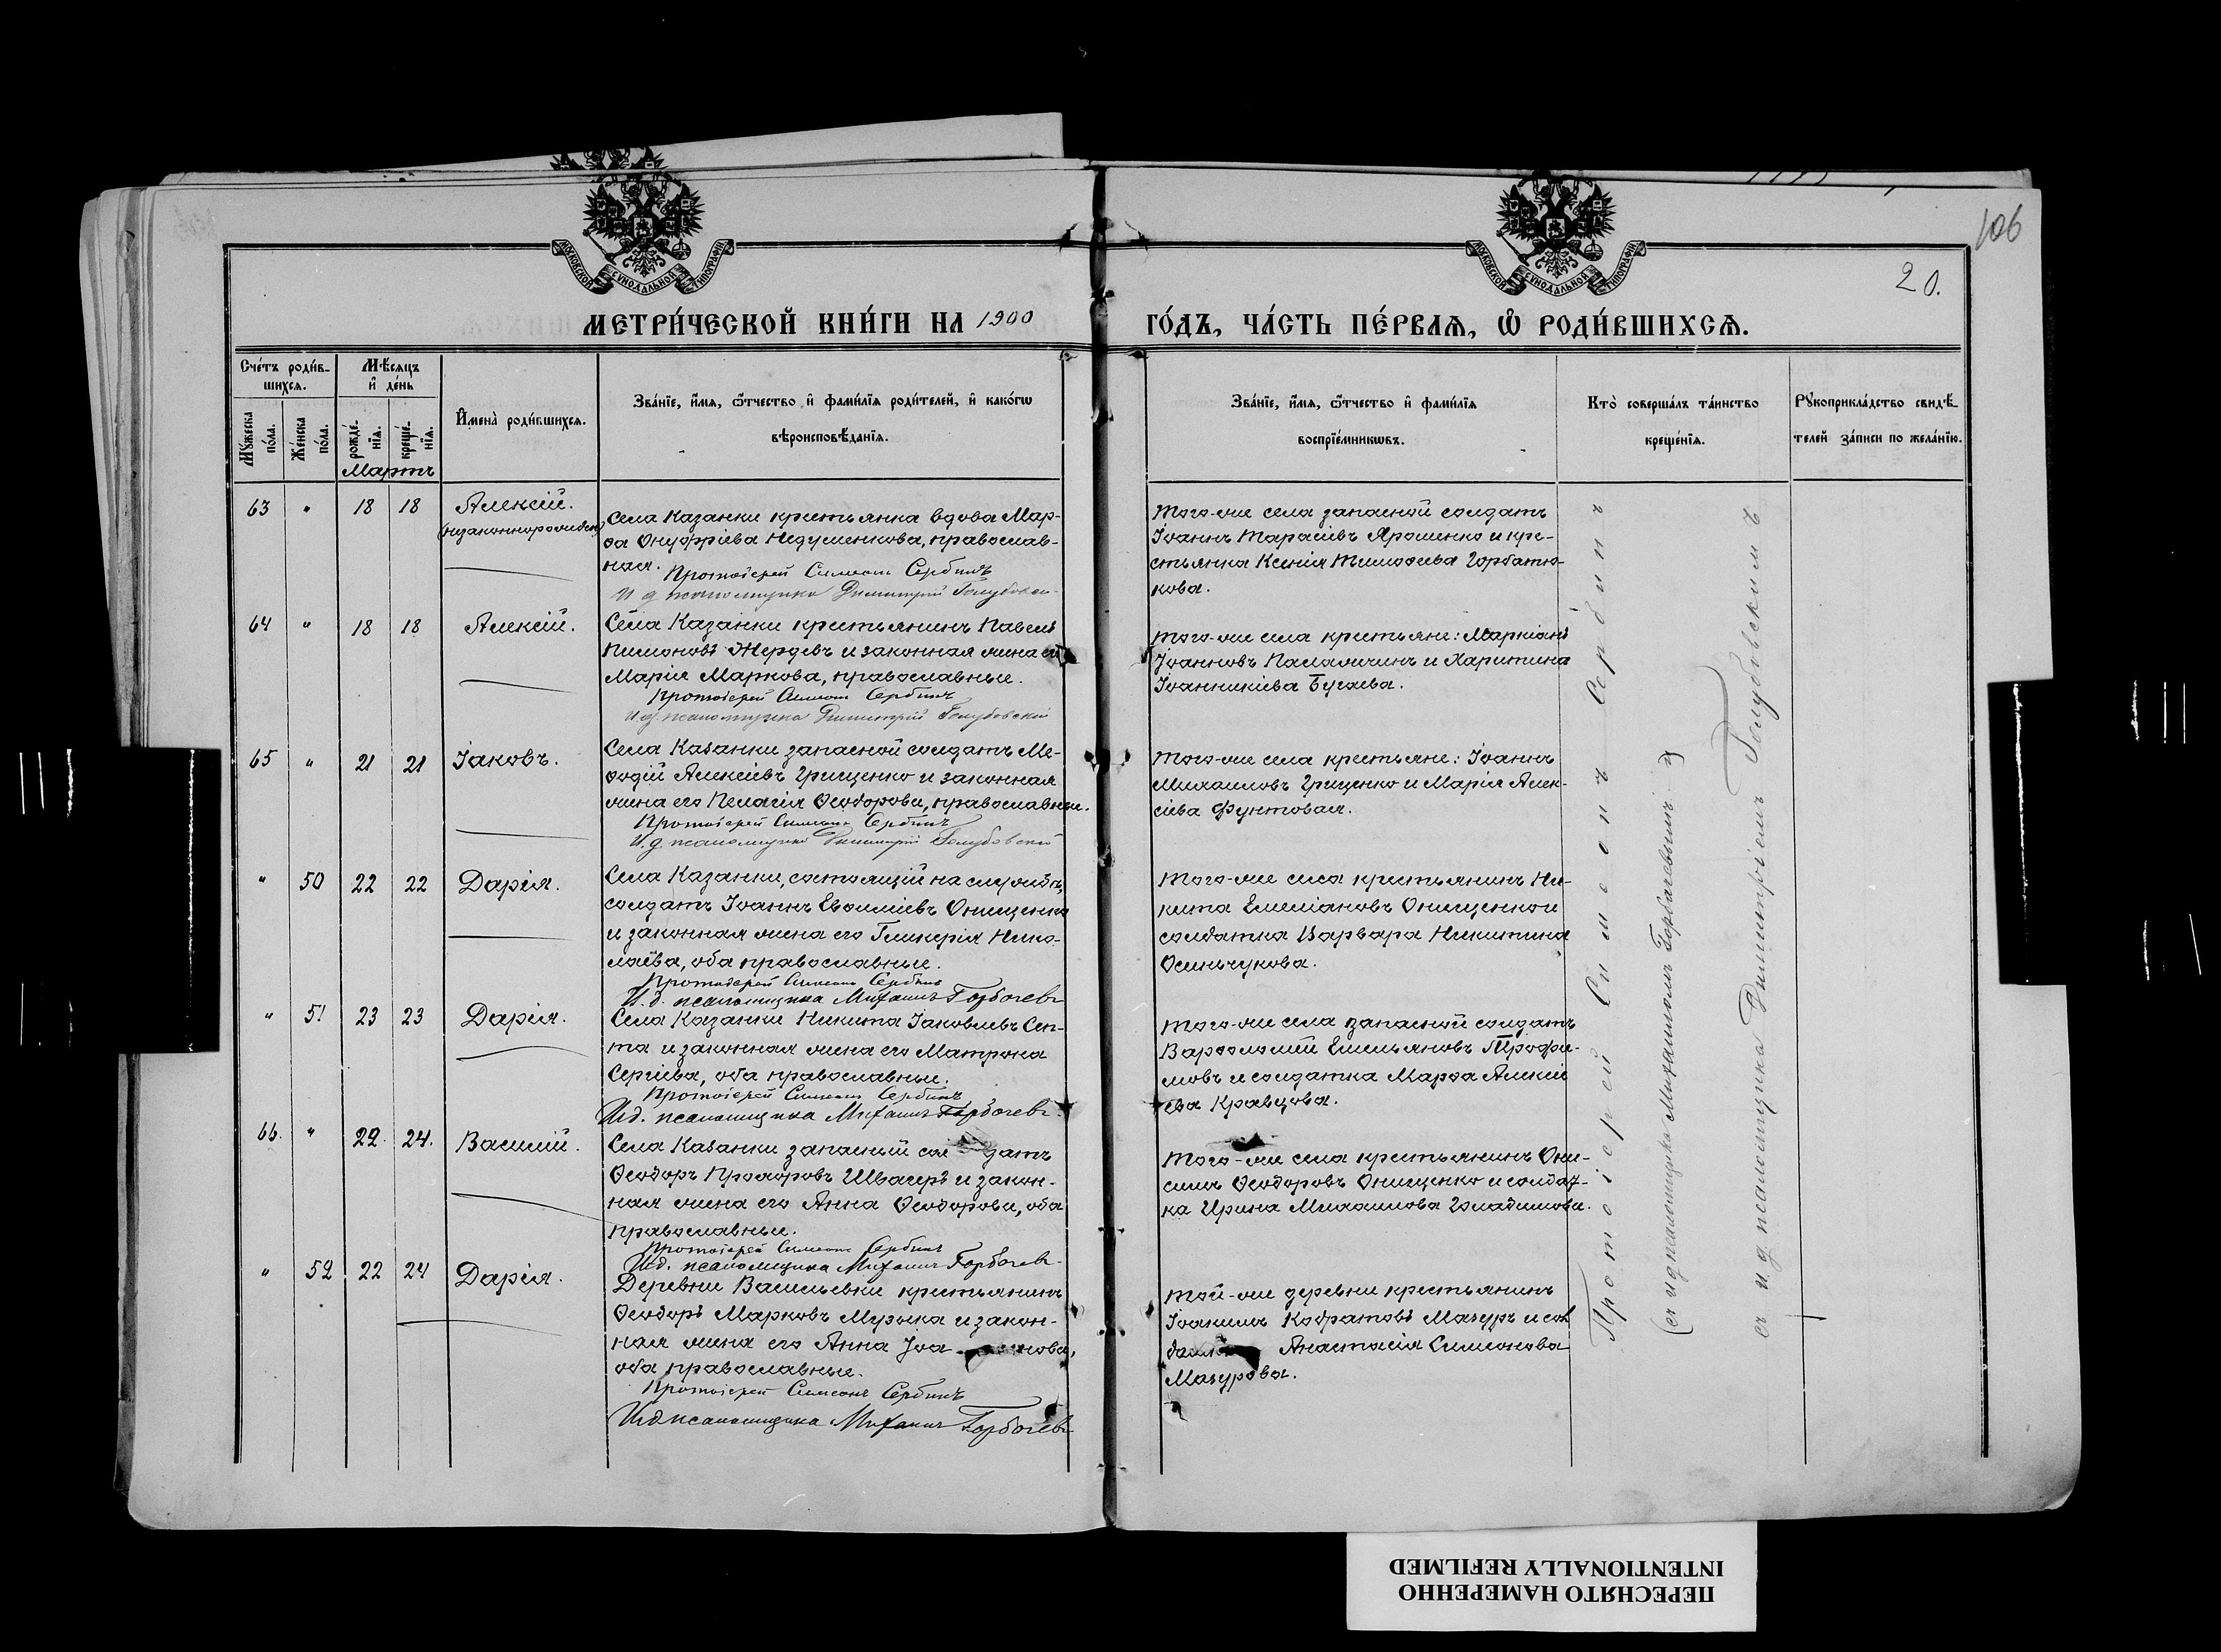 106
20.
МОСКОВСКОЙ СѴНОДАЛЬНОЙ ТИПОГРАФІИ
МОСКОВСКОЙ СѴНОДАЛЬНОЙ ТИПОГРАФІИ
МЕТРИ́ЧЕСКОЙ КНИ́ГИ НА 1900
ГО́ДЪ, ЧА́СТЬ ПЕ́РВАѦ, Ѡ҆ РОДИ́ВШИХСѦ.
Сче́тъ роди́в-
шихсѧ.
Мѣ́сѧцъ
и҆ де́нь
Мꙋ́жеска
по́ла.
Же́нска
по́ла.
рожде́-
нїѧ.
креще́-
нїѧ.
Мартъ
И҆мена̀ роди́вшихсѧ.
Зва́нїе, и҆́мѧ, ѻ҆́тчество и҆ фами́лїѧ роди́телей, и҆ како́гѡ
вѣроисповѣ́данїѧ.
Зва́нїе, и҆́мѧ, ѻ҆́тчество и҆ фами́лїѧ
воспрїе́мникѡвъ.
Кто̀ соверша́лъ та́инство
креще́нїѧ.
Рꙋкоприкла́дство свидѣ́-
телей за́писи по жела́нїю.
63 " 18 18 Алексій.
(незаконнорожден)
Села Казанки крестьянка вдова Мар-
ѳа Онуфріева Недуменкова, православ-
ная. Протоіерей Симеонъ Сербинъ
И д псаломщика Димитрій Голубовскій
того-же села запасной солдатъ
Іоаннъ Тарасіевъ Ярошенко и кре-
стьянка Ксенія Тимоѳеева Горбатю-
кова.
64 " 18 18 Алексій.
Села Казанки крестьянинъ Павелъ
Пимоновъ Жердевъ и законная жена его
Марія Маркова, православные.
Протоіерей Симеонъ Сербинъ
И.д. псаломщика Димитрій Голубовскій
того-же села крестьяне: Маркіанъ
Іоанновъ Паламичинъ и Харитина
Іоанникіева Бугаева.
65 " 21 21 Іаковъ.
Села Казанки запасной солдатъ Ме-
ѳодій Алексіевъ Грищенко и законная
жена его Пелагія Ѳеодорова, православные.
Протоіерей Симеонъ Сербинъ
И.д псаломщика Димитрій Голубовскій
того-же села крестьяне: Іоаннъ
Михаиловъ Грищенко и Марія Алек-
сіева Фунтовая.
" 50 22 22 Дарія.
Села Казанки, состоящій на службѣ,
солдатъ Іоаннъ Евѳиміевъ Онищенко
и законная жена его Гликерія Нико-
лаева, оба православные.
Протоіерей Симеонъ Сербинъ
И.д. псаломщика Михаилъ Горбачевъ
того-же села крестьянинъ Ни-
кита Емеліановъ Онищенко и
солдатка Варвара Никитина
Осиньчукова.
" 51 23 23 Дарія.
Села Казанки Никита Іаковлевъ Сеп-
та и законная жена его Матрона
Сергіева, оба православные.
Протоіерей Симеонъ Сербинъ
И.д. псаломщика Михаилъ Горбачевъ
того-же села запасной солдатъ
Варѳоломій Емельяновъ Трофи-
мовъ и солдатка Марѳа Алексіе
ева Кравцова.
66. " 22. 24. Василій.
Села Казанки запасный солдатъ
Ѳеодоръ Прохоровъ Швагеръ и закон-
ная жена его Анна Ѳеодорова, оба
православные.
Протоіерей Симеонъ Сербинъ
И.д. псаломщика Михаилъ Горбачевъ
того-же села крестьянинъ Они-
симъ Ѳеодоровъ Онищенко и солдат-
ка Ирина Михаилова
" 52 22 24 Дарія.
Деревни Васильевки крестьянинъ
Ѳеодоръ Марковъ Музыка и закон-
ная жена его Анна
оба православные.
Протоіерей Симеонъ Сербинъ
И д псаломщика Михаилъ Горбачевъ
той-же деревни крестьянинъ
Іоакимъ Кодратовъ Мазуръ и сол
Анастасія Симеонова
Мазурова.
Протоіерей Симеонъ Сербинъ
(съ и д псаломщика Михаиломъ Горбачевымъ
съ и д псаломщика Димитріемъ Голубовскимъ
ПЕРЕСНЯТО НАМЕРЕННО
INTENTIONALLY REFILMED